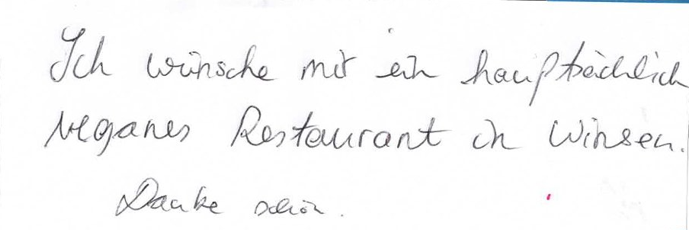 Ich wünsche mir ein hauptsächlich
veganes Restaurant in Winsen.
Danke schön.